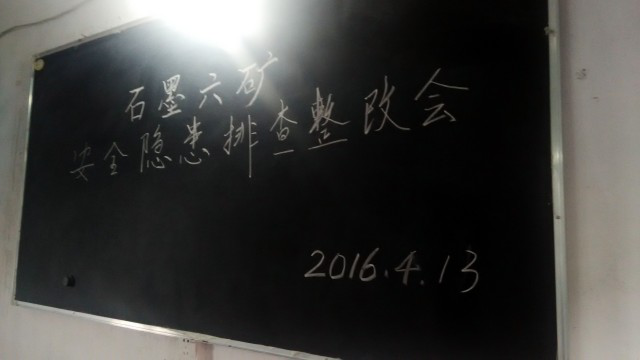 石墨六矿
安全隐患排查整改会
2016.4.13